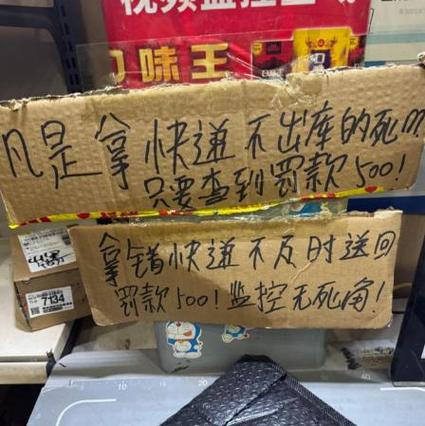 视频监控区
口味王
凡是拿快递不出库的死
只要查到罚款500!
拿错快递不及时送回
罚款500!监控无死角!
7134